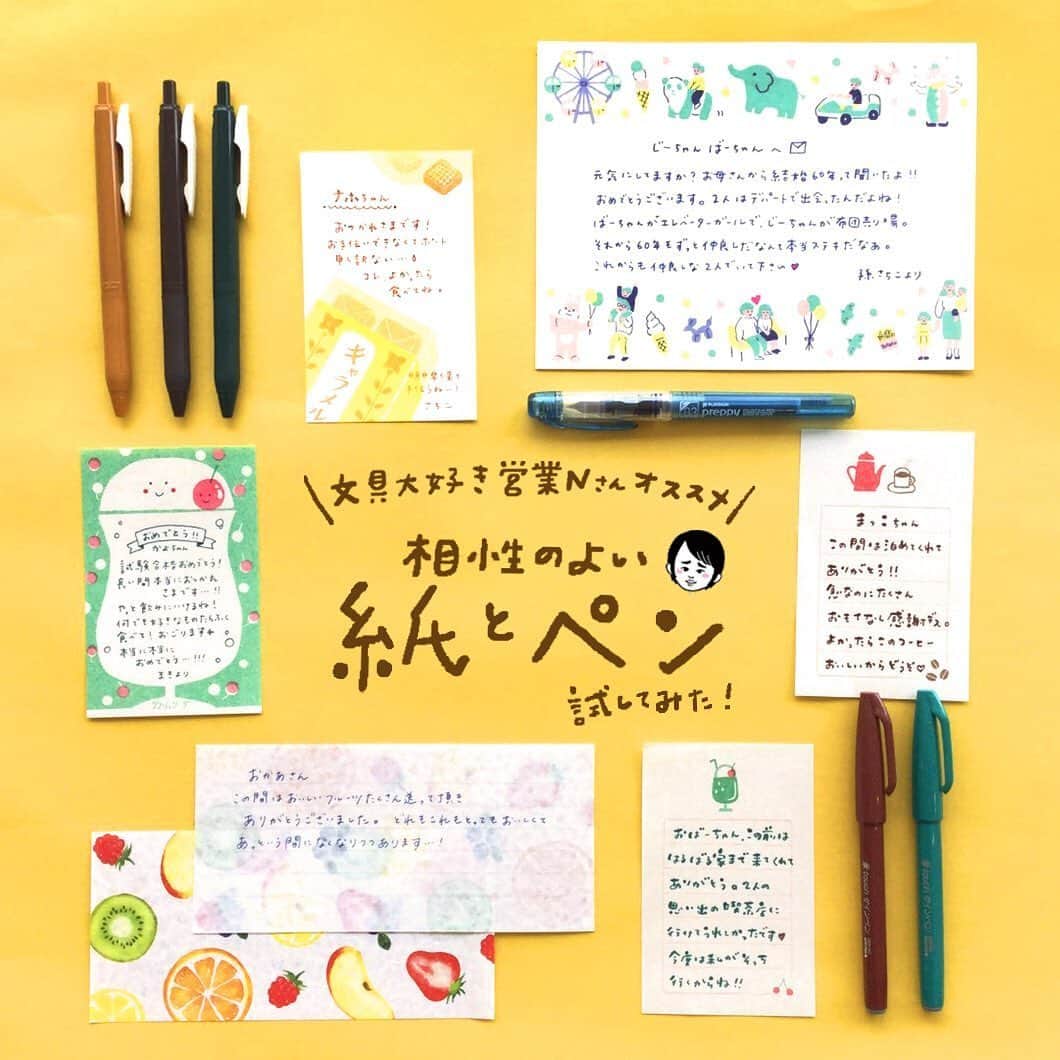 じーちゃん ばーちゃん へ
元気にしてますか？お母さんから結婚60年って聞いたよ!!
おめでとうございます。2人はデパートで出会ったんだよね！
ばーちゃんがエレベーターガールで、じーちゃんが布団売り場。
それから60年もずっと仲良しだなんて本当ステキだなあ。
これからも仲良しな2人でいて下さい♥
孫、さちこより
ちゃん
おつかれさまです！
お手伝いできなくてホント
申し訳ない…。
コレ、よかったら
食べてね。
キャラメル
さちこ
PLATINUM
preppy
03
文具大好き営業Nさんオススメ
相性のよい
紙とペン
試してみた！
おめでとう!!
かよちゃん
試験合格おめでとう！
長い間本当におつかれ
さまです…!!
やっと飲みにいけるね！
何でも好きなものたらふく
食べて！おごります
本当に本当に
おめでとう…!!!
まきより
まっこちゃん
この間は泊めてくれて
ありがとう!!
急なのにたくさん
おもてなし感謝です。
よかったらこのコーヒー
おいしいからどうぞ♡
おかあさん
この間はおいしいフルーツたくさん送って頂き
ありがとうございました。 どれもこれもとってもおいしくて
あっという間になくなりつつあります…！
おばーちゃん、この前は
はるばる家まで来てくれて
ありがとう。2人の
思い出の喫茶店に
行けてうれしかったです♥
今度は私がそっち
行くからね!!
touch サインペン
touch サインペン